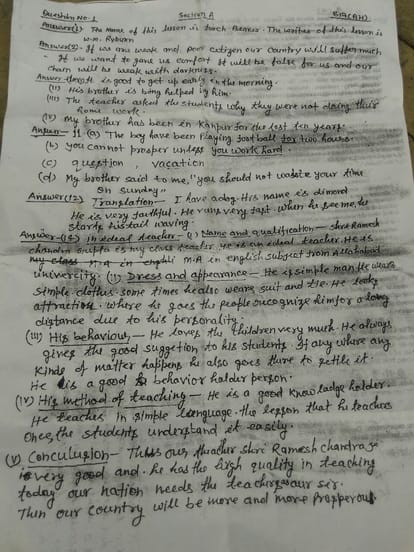 Question No. 1 Section A 871(AH)
Answer(1). The Name of this lesson is torch Bearer. The writer of this lesson is
W.M. Ryburn
Answer(2). If we are weak and poor citizen our Country will suffer much
If we want to gave us comfort It will be false for us and our
Charn will be weak with darkness.
Answer - It is good to get up early in the morning.
(II) His brother is being helped by him.
(III) The teacher asked the students why they were not doing their
home work.
(IV) My brother has been in Kanpur for the last ten years.
Answer - 11 (a) The boy have been playing football for two hours.
(b) you cannot prosper unless you work hard.
(c) question, vacation
(d) My brother said to me, "you should not waste your time
on sunday"
Answer (12) Translation - I have a dog. His name is dimond
He is very faithful. He runs very fast when he see me, he
starts his tail waving.
Answer - (13) An ideal teacher - (i) Name and qualification - shri Ramesh
chandra Gupta is my class teacher. He is an ideal teacher. He is
my class M.A. in English M.A in english subject from Allahabad
university. (ii) Dress and appearance - He is simple man. He wears
Simple cloths. some times he also wears suit and tie. He looks
attractive. where he goes the people recognize him for a long
distance due to his personality.
(iii) His behaviour - He loves the children very much. He always
gives the good suggetion to his students. If any where any
Kinds of matter happens he also goes there to settle it.
He is a good behavior holder person.
(iv) His method of teaching - He is a good knowladge holder.
He teaches in simple language. the lesson that he teaches
Once, the students understand it easily.
(v) Conculusion - Thus our theacher shri Ramesh chandra je
is very good and. he has the high quality in teaching
today our nation needs the teacher as our sir.
Then our country will be more and more Prosperous.